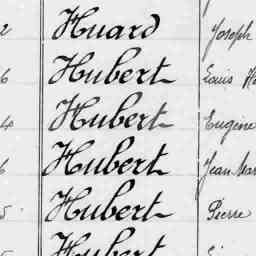 2 Huard Joseph
6 Hubert Louis
4 Hubert Eugène
6 Hubert Jean Mar
5 Hubert Pierre
Hubert